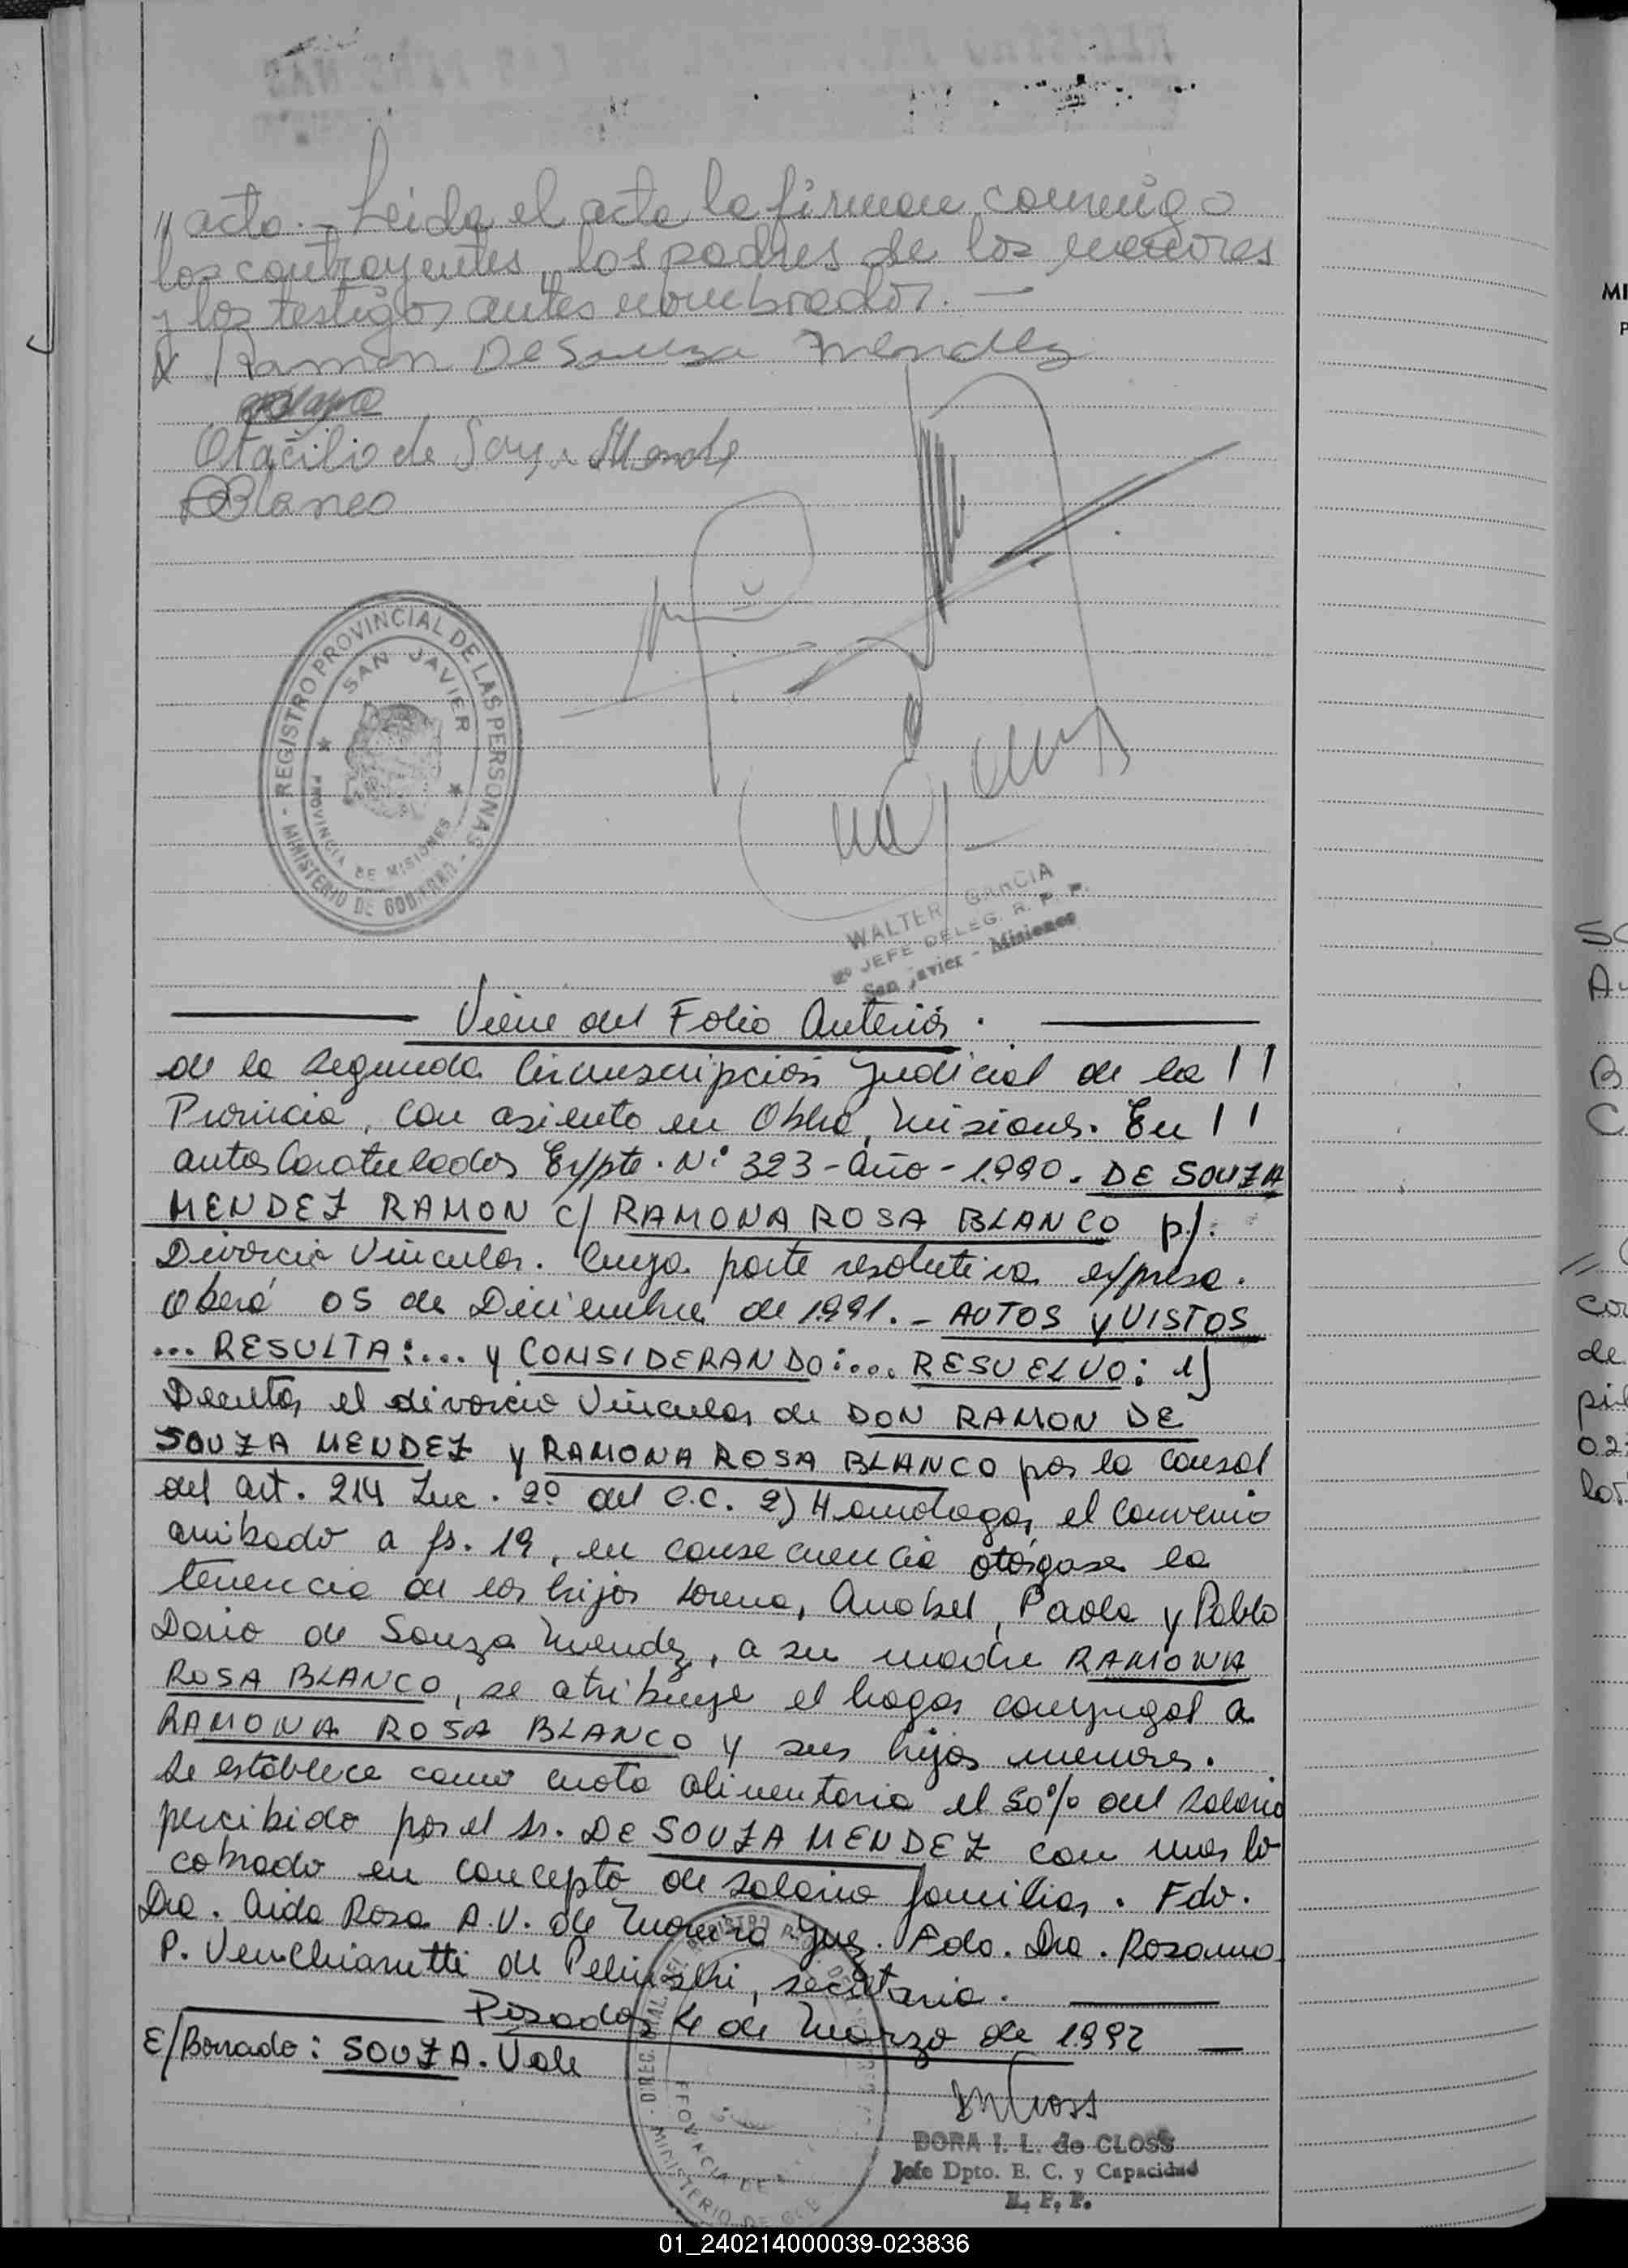 // acto. - Leida el acta la firman conmigo
los contrayentes, los padres de los menores
y los testigos antes nombrados. —
X Ramon De Souza Mendez
Otacilio de Souza Mende
RBlanco
- REGISTRO PROVINCIAL DE LAS PERSONAS - MINISTERIO DE GOBIERNO
SAN JAVIER
PROVINCIA DE MISIONES
WALTER GARCIA
JEFE DELEG. R. P. P.
San Javier - Misiones
Viene del Folio Anterior.
de la Segunda Circunscripción Judicial de la //
Provincia, con asiento en Oberá, Misiones. En //
autos Caratulados Expte. N° 323 - Año - 1.990. DE SOUZA
MENDEZ RAMON c/ RAMONA ROSA BLANCO p/.
Divorcio Vincular. Cuya parte resolutiva expresa.
Oberá 05 de Diciembre de 1.991. - AUTOS y VISTOS
... RESULTA:... y CONSIDERANDO:... RESUELVO: 1)
Decretar el divorcio Vincular de DON RAMON DE
SOUZA MENDEZ y RAMONA ROSA BLANCO por la causal
del art. 214 Inc. 2° del C.C. 2) Homologar el Convenio
arribado a fs. 19, en consecuencia otórgase la
tenencia de los hijos Lorena, Anabel, Paola y Pablo
Dario de Souza Mendez, a su madre RAMONA
ROSA BLANCO, se atribuye el hogar conyugal a
RAMONA ROSA BLANCO y sus hijos menores.
Se establece como cuota alimentaria el 50% del Salario
percibido por el Sr. DE SOUZA MENDEZ con mas lo
cobrado en concepto de salario familiar. Fdo.
Dra. Aida Rosa A.V. de Moreira Juez. Fdo. Dra. Rosanna
P. Venchiarutti de Pelinski, secretaria.
Posadas 4 de Marzo de 1.992 —
E/Borrado: SOUZA. Vale
DORA I. L. de CLOSS
Jefe Dpto. E. C. y Capacidad
R. P. P.
MINISTERIO DE
01_240214000039-023836